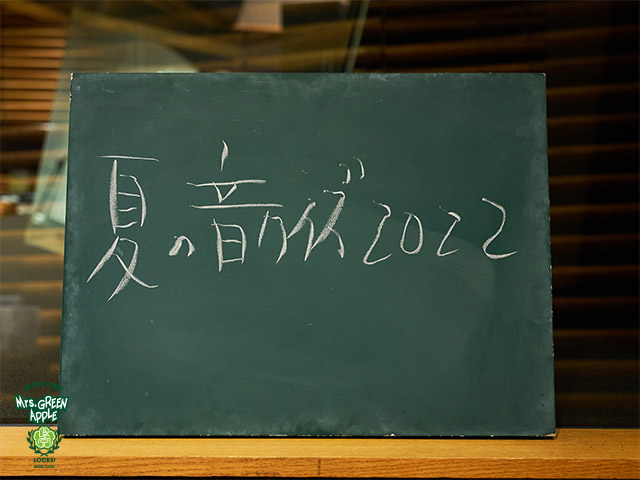 夏の音クイズ2022
Mrs. GREEN
APPLE
LOCKS!